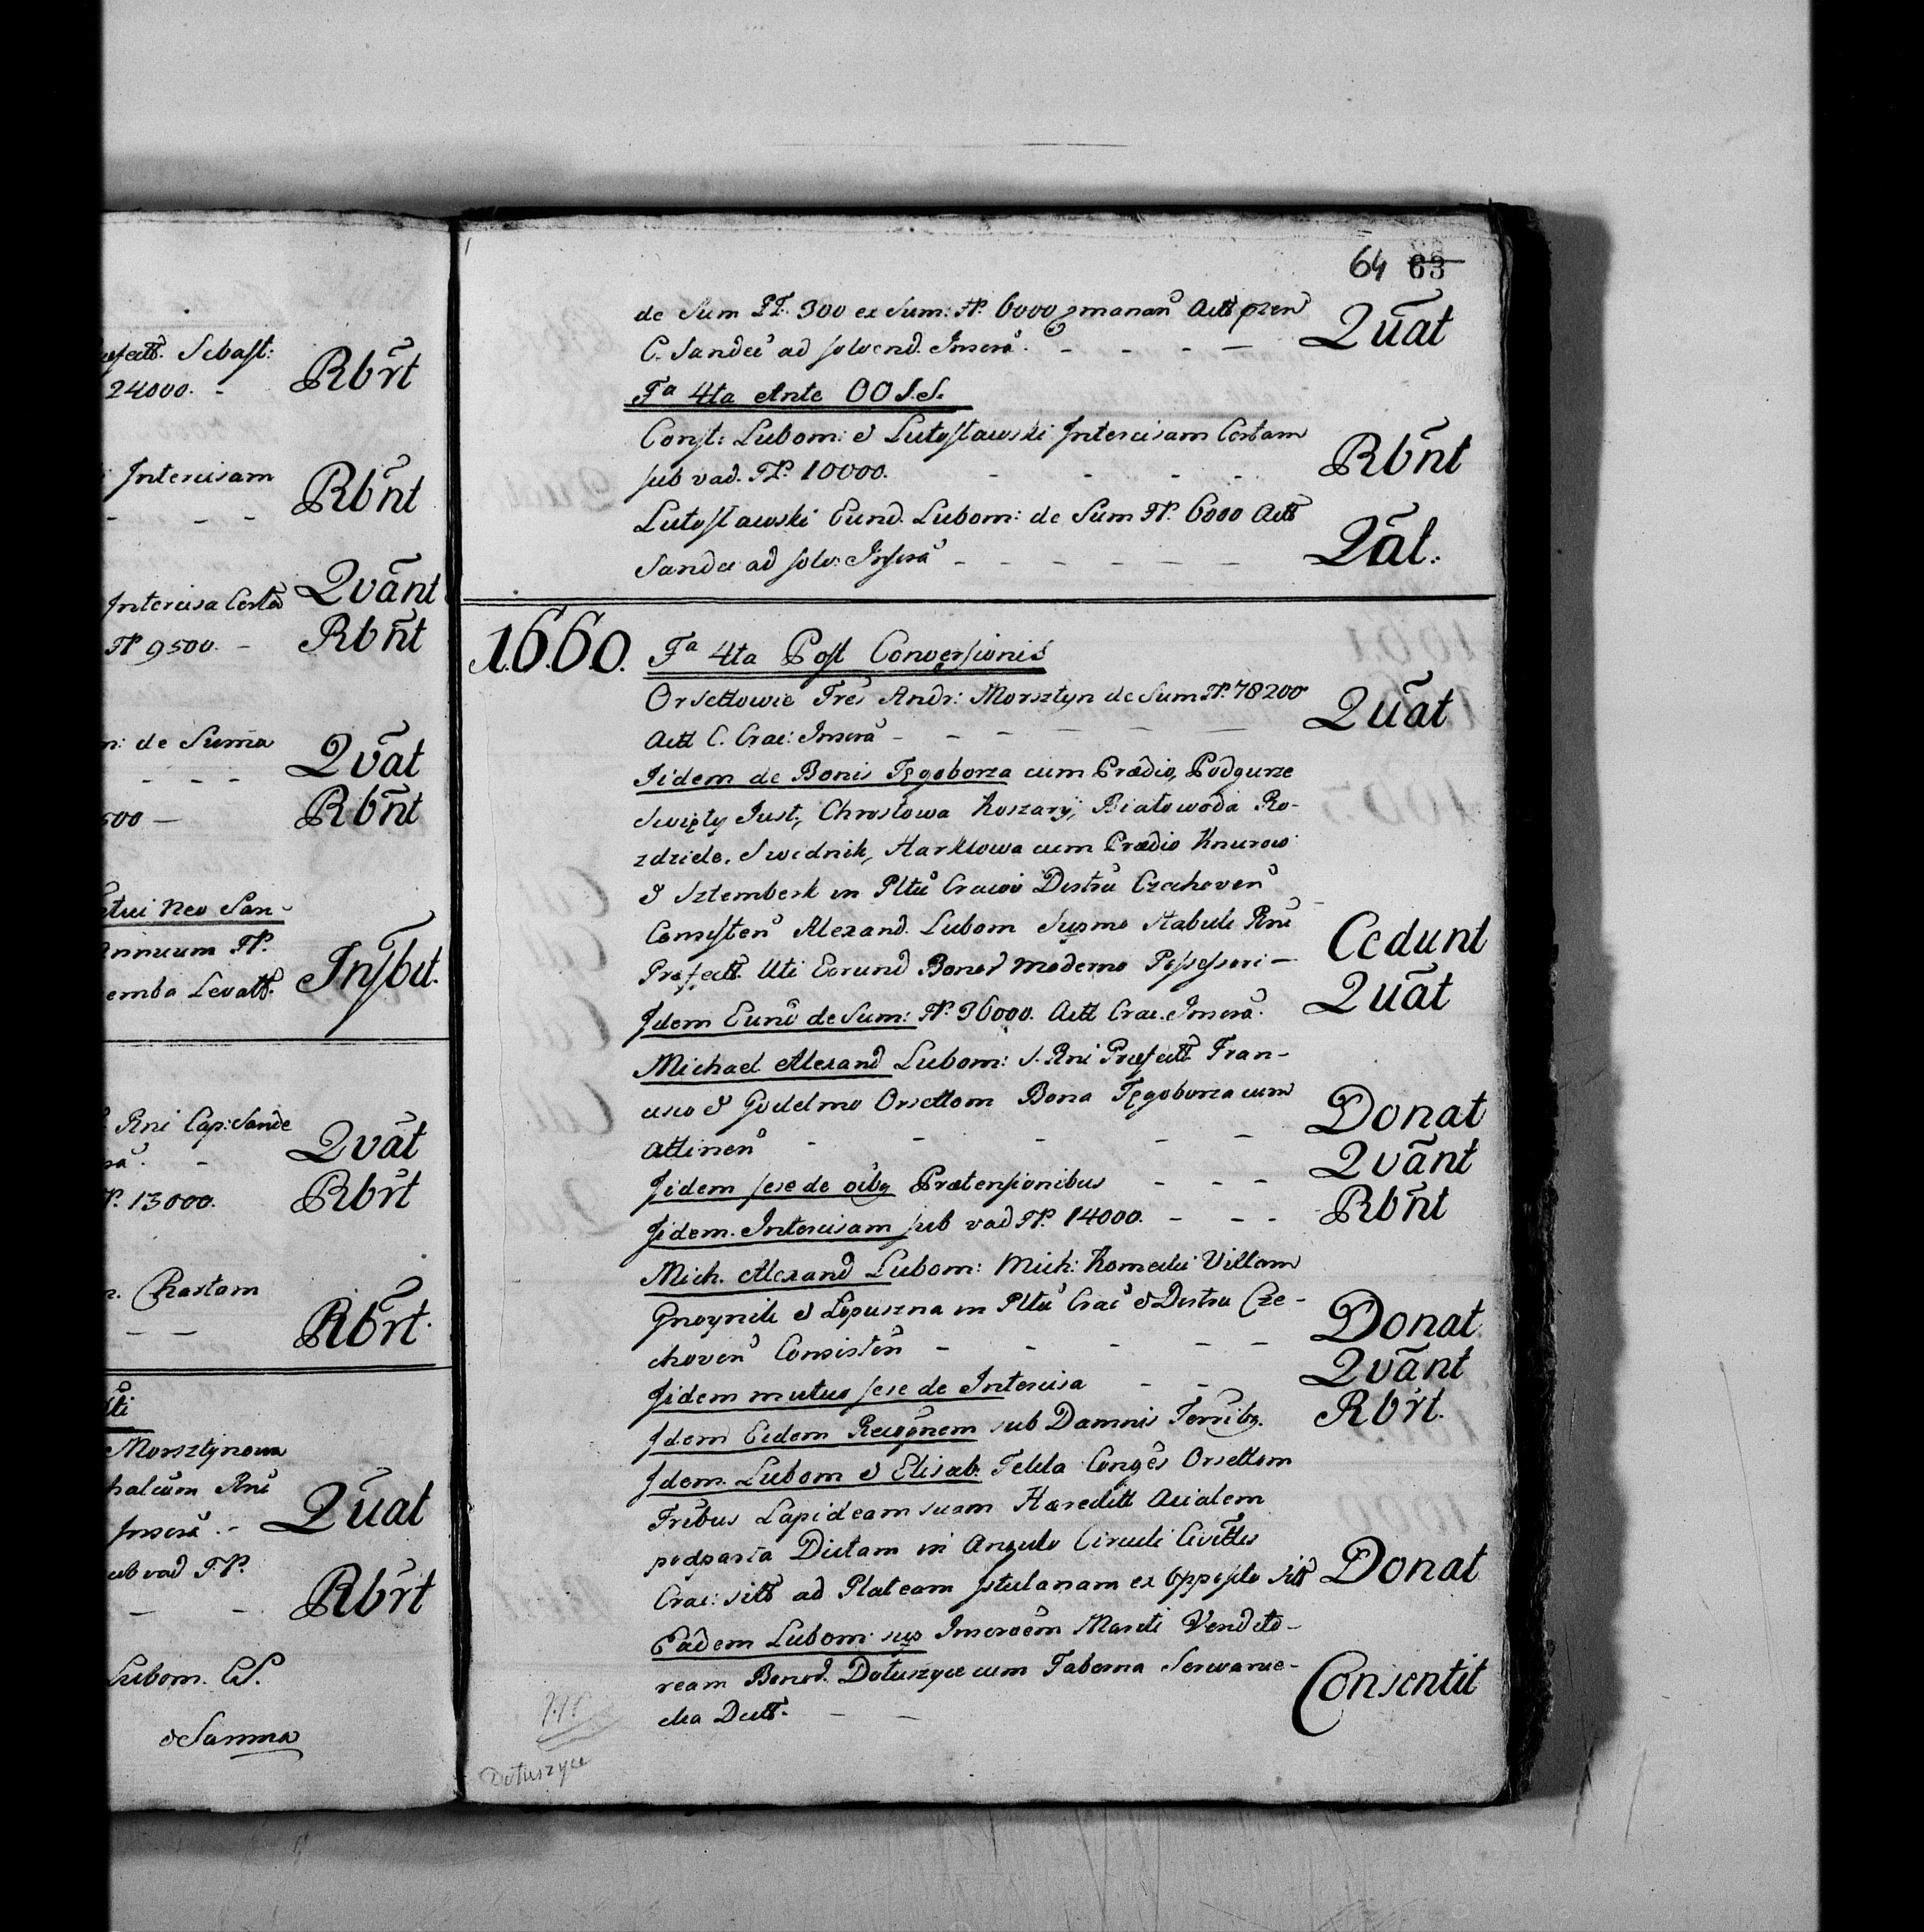 efectt. Sebast:
24000. - Rbrt
Intercisam Rbnt
- - -
Intercisa Certa Qvant
Fl 9500. - Rbnt
m: de Suma Qvat
- - -
500 - Rbnt
ctui Neo San-
Annuum Fl.
emba Levatt. Insbit.
Rni Cap: Sande Qvat
Fl. 13000. Rbrt
Chartam
- - Rbrt.
Morsztynowa
halcum Rni Quat
Inscra. -
ub vad Fl.
- - Rbrt
Lubom. CS.
& Samma
64 63
de Sum Fl. 300 ex Sum: Fl. 6000 manan Actt
C. Sandec ad solvend. Inscra. - - - - Quat
Fa 4ta Ante OO S.S.
Const: Lubom: & Lutosławski Intercisam Certam
sub vad. Fl. 10000. - - - - Rbnt
Lutosławski Eund. Lubom: de Sum Fl. 6000 Actt
Sandec ad solv. Inscra - - - - - - Qat.
1660. Fa 4ta Post Conversionis
Orsettowie Fres Andr: Morsztyn de Sum Fl. 78200
Actt C. Crac: Inscra - - - - - - Quat
Iidem de Bonis Tęgoborza cum Prædio, Podgurze
Swięty Just, Chrostowa Koszary, Białowoda Ro-
zdziele, Swidnik, Harklowa cum Prædio Knurow
& Sztembark in Pltu Cracov Distru Czchoven
Consisten Alexand. Lubom Supmo Stabuli Rni Cedunt
Præfectt. Uti Eorund Bonor moderno Possessori -
Idem Eund de Sum: Fl. 36000. Actt Crac. Inscra. Quat
Michael Alexand Lubom: S. Rni Præfectt Fran-
cisco & Gvilelmo Orsettom Bona Tęgoborza cum
attinen - - - - - Donat
Iidem sese de oibg Prætensionibus - - - Qvant
Iidem. Intercisam sub vad Fl. 14000. - - - Rbnt
Mich. Alexand Lubom: Mich: Komecki Villam
Gnoynik & Łopuszna in Pltu Crac & Distru Cze-
choven Consisten - - - - - Donat
Iidem mutuo sese de Intercisa - - Qvant
Idem Eidem Recognem sub Damnis Terribg. Rbrt.
Idem. Lubom & Elisab. Tekla Conges Orsettom
Fribus Lapideam suam Hæreditt Acialem
podparta Dictam in Angulo Circuli Civittis
Crac: sitt ad Plateam ex opposito sitt Donat
Eadem Lubom: sup Inscroem Mariti Vendito-
ream Bonor. Dołuszyce cum Taberna Serwanie-
cka Dictt. - - Consentit
Dołuszyce